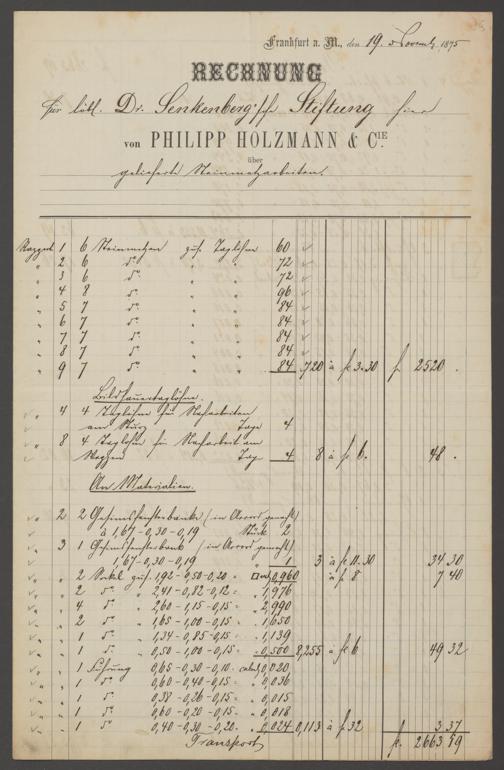 Frankfurt a. M., den 19. Novemb. 1875
RECHNUNG
für löbl. Dr. Senkenberg'sche Stiftung hier
von PHILIPP HOLZMANN & CIE.
über
gelieferte Steinmetzarbeiten.
1 6 Steinmetzen zus. Taglohn 60
" 2 6 do " " 72
" 3 6 do " " 72
" 4 8 do " " 96
" 5 7 do " " 84
" 6 7 do " " 84
" 7 7 do " " 84
" 8 7 do " " 84
" 9 7 do " " 84 720 à f 3.30 f. 2520.
Bildhauertaglöhne.
" 4 4 Taglöhne für Nacharbeiten
am Sturz Tage 4
" 8 4 Taglöhne für Nacharbeit am
Wappen Tag 4 8 à f 6. 48.
An Materialien.
" 2 2 Gesimsfensterbänke (in Accord gemacht)
à 1,67-0,30-0,19 Stück 2
" 3 1 Gesimsfensterbank (in Accord gemacht)
1,67-0,30-0,19 " 1 3 à f 11.30 34 30
" 2 Sockel 1,92-0,50-0,20 = 0,960 à f 8 7 40
" 2 do 2,41-0,82-0,12 = " 1,976
" 4 do 2,60-1,15-0,15 = " 2,990
" 2 do 1,65-1,00-0,15 = " 1,650
" 1 do 1,34-0,85-0,15 = " 1,139
" 1 do 0,50-1,00-0,15 = " 0,500 8,255 à f 6 49 32
" 1 Führung 0,65-0,30-0,10 = 0,020
" 1 do 0,60-0,40-0,15 = " 0,036
" 1 do 0,38-0,26-0,15 = " 0,015
" 1 do 0,60-0,20-0,15 = " 0,018
" 1 do 0,40-0,30-0,20 = " 0,024 0,113 à f 32 f 3 37
Transport f. 2663 59